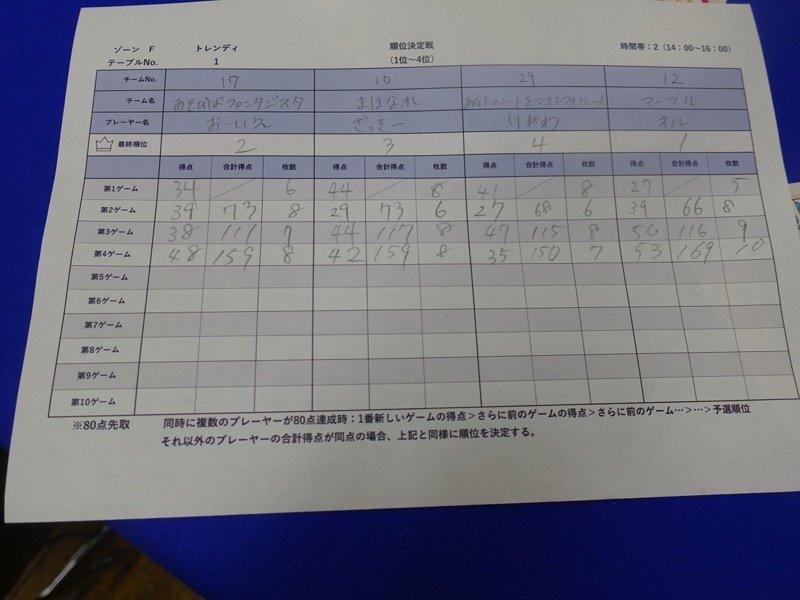 ゾーン F トレンディ 順位決定戦 時間帯:2(14:00~16:00)
テーブルNo. 1 (1位~4位)
チームNo. 17 10 29 12
チーム名 あそびばファンタジスタ まはなれ マーフル
プレーヤー名 おーいえ ざっきー けがわ オル
最終順位 2 3 4 1
得点 合計得点 枚数 得点 合計得点 枚数 得点 合計得点 枚数 得点 合計得点 枚数
第1ゲーム 34 6 44 8 41 8 27 5
第2ゲーム 39 73 8 29 73 6 27 68 6 39 66 8
第3ゲーム 38 111 7 44 117 8 47 115 8 50 116 9
第4ゲーム 48 159 8 42 159 8 35 150 7 53 169 10
第5ゲーム
第6ゲーム
第7ゲーム
第8ゲーム
第9ゲーム
第10ゲーム
※80点先取 同時に複数のプレーヤーが80点達成時:1番新しいゲームの得点>さらに前のゲームの得点>さらに前のゲーム…>…>予選順位
それ以外のプレーヤーの合計得点が同点の場合、上記と同様に順位を決定する。